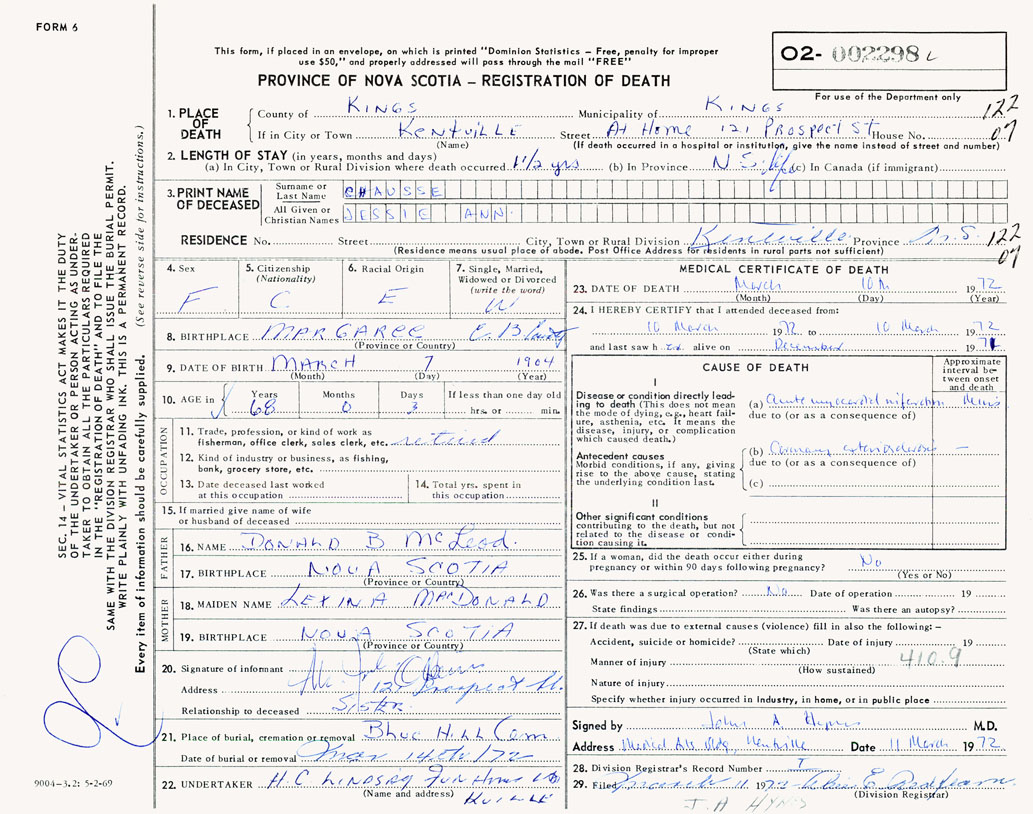 FORM 6
This form, if placed in an envelope, on which is printed "Dominion Statistics – Free, penalty for improper
use $50," and properly addressed will pass through the mail "FREE"
PROVINCE OF NOVA SCOTIA – REGISTRATION OF DEATH
02- 002298 L
For use of the Department only
122
07
1. PLACE OF DEATH
County of KINGS Municipality of KINGS
If in City or Town KENTVILLE Street At Home 121 PROSPECT ST House No.
(Name) (If death occurred in a hospital or institution, give the name instead of street and number)
2. LENGTH OF STAY (in years, months and days)
(a) In City, Town or Rural Division where death occurred 1 1/2 yrs (b) In Province N S life (c) In Canada (if immigrant)
3. PRINT NAME OF DECEASED
Surname or Last Name CHAUSSE
All Given or Christian Names JESSIE ANN
RESIDENCE No. Street City, Town or Rural Division Kentville Province N.S. 122
(Residence means usual place of abode. Post Office Address for residents in rural parts not sufficient) 07
4. Sex F
5. Citizenship (Nationality) C
6. Racial Origin E
7. Single, Married, Widowed or Divorced (write the word) W
8. BIRTHPLACE MARGAREE
(Province or Country)
9. DATE OF BIRTH MARCH 7 1904
(Month) (Day) (Year)
10. AGE in Years 68 Months 0 Days 3 If less than one day old hrs. or min.
OCCUPATION
11. Trade, profession, or kind of work as
fisherman, office clerk, sales clerk, etc. retired
12. Kind of industry or business, as fishing,
bank, grocery store, etc.
13. Date deceased last worked
at this occupation
14. Total yrs. spent in
this occupation
15. If married give name of wife
or husband of deceased
FATHER
16. NAME DONALD B McLeod.
17. BIRTHPLACE NOVA SCOTIA
(Province or Country)
MOTHER
18. MAIDEN NAME LEXINA MacDONALD
19. BIRTHPLACE NOVA SCOTIA
(Province or Country)
20. Signature of informant
Address Prospect St.
Relationship to deceased Sister
21. Place of burial, cremation or removal Hill Cem
Date of burial or removal Mar 14th/72
22. UNDERTAKER H.C. LINDSAY Fun Home
(Name and address) KVILLE
MEDICAL CERTIFICATE OF DEATH
23. DATE OF DEATH March 10th 1972
(Month) (Day) (Year)
24. I HEREBY CERTIFY that I attended deceased from:
10 March 1972 to 10 March 1972
and last saw h er alive on December 1971
CAUSE OF DEATH
Approximate interval between onset and death
I
Disease or condition directly leading to death (This does not mean
the mode of dying, e.g., heart failure, asthenia, etc. It means the
disease, injury, or complication
which caused death.)
(a) Acute myocardial infarction
due to (or as a consequence of)
Antecedent causes
Morbid conditions, if any, giving
rise to the above cause, stating
the underlying condition last.
(b) Coronary –
due to (or as a consequence of)
(c)
II
Other significant conditions
contributing to the death, but not
related to the disease or condition causing it.
25. If a woman, did the death occur either during
pregnancy or within 90 days following pregnancy? No
(Yes or No)
26. Was there a surgical operation? No Date of operation 19
State findings Was there an autopsy?
27. If death was due to external causes (violence) fill in also the following: –
Accident, suicide or homicide? Date of injury 19
(State which)
Manner of injury 410.9
(How sustained)
Nature of injury
Specify whether injury occurred in Industry, in home, or in public place
Signed by John A Hynes M.D.
Address Medical Arts Bldg, Kentville Date 11 March 1972
28. Division Registrar's Record Number
29. Filed March 11 1972
(Division Registrar)
J.A HYNES
SEC. 14 – VITAL STATISTICS ACT MAKES IT THE DUTY
OF THE UNDERTAKER OR PERSON ACTING AS UNDERTAKER TO OBTAIN ALL THE PARTICULARS REQUIRED
IN THE "REGISTRATION OF DEATH" AND TO FILE THE
SAME WITH THE DIVISION REGISTRAR WHO SHALL ISSUE THE BURIAL PERMIT.
WRITE PLAINLY WITH UNFADING INK. THIS IS A PERMANENT RECORD.
Every item of information should be carefully supplied. (See reverse side for instructions.)
9004-3.2: 5-2-69